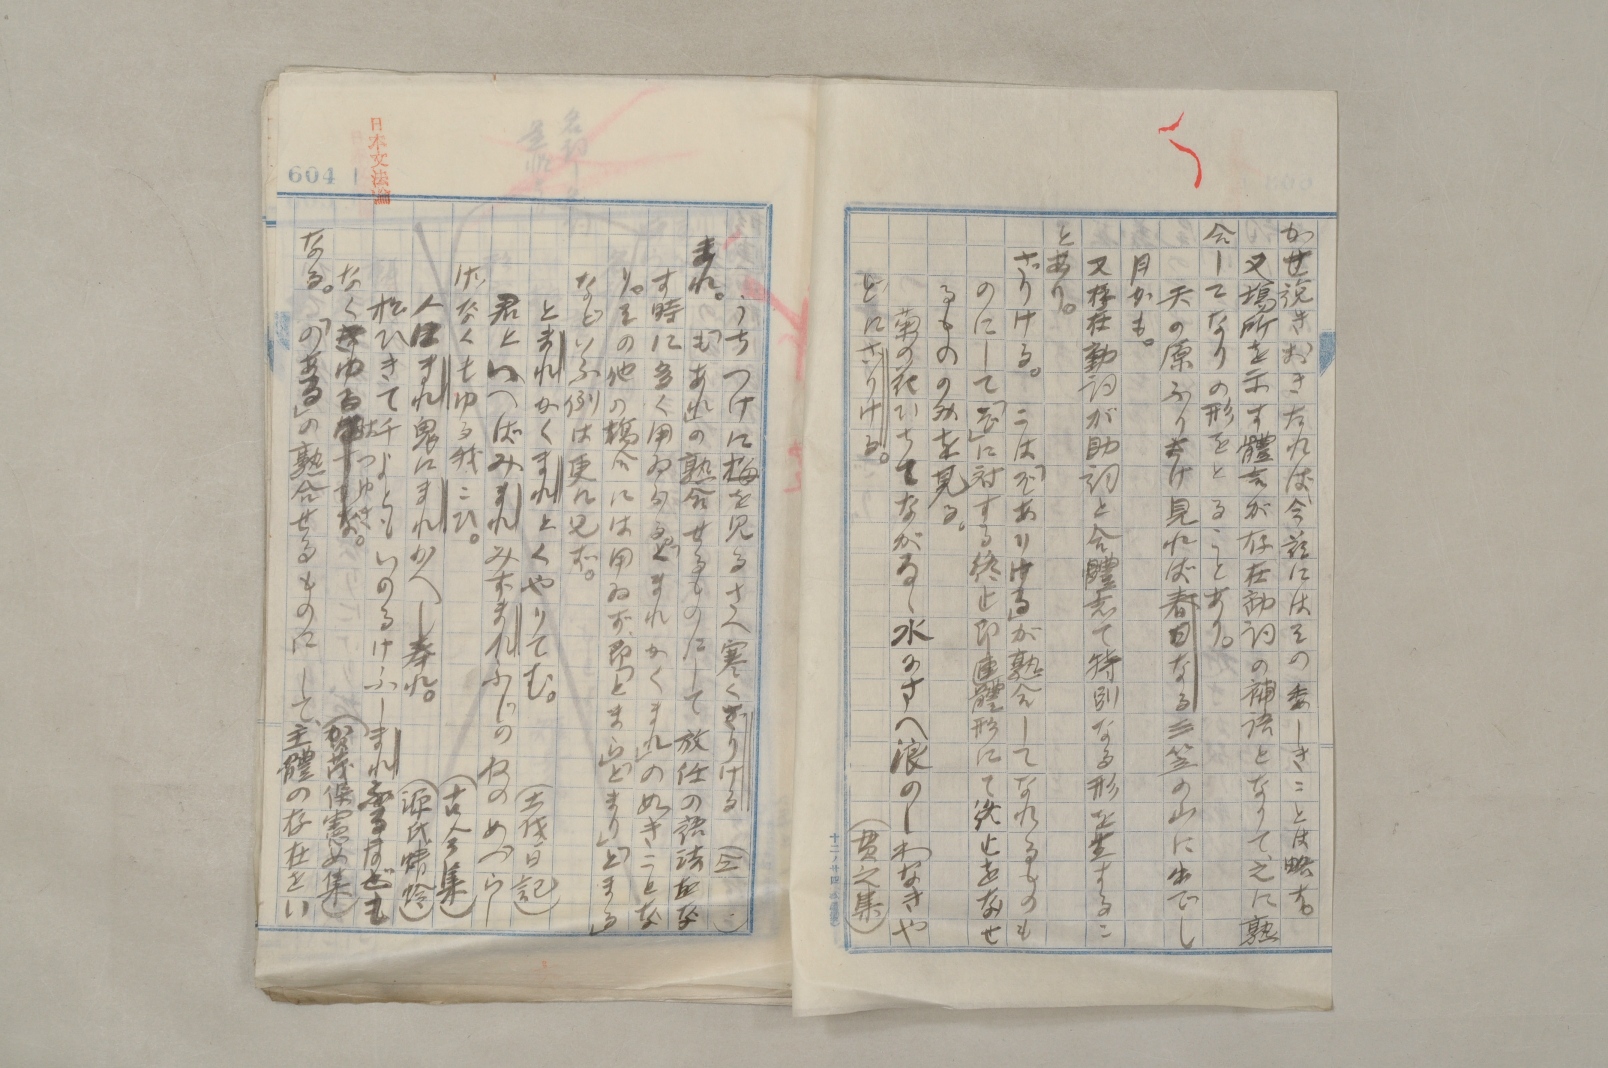 かせ説きおきたれば今茲にはその委しきことは略す。
又場所を示す體言が存在動詞の補語となりて之に熟
合してなりの形をとることあり。
天の原ふりさけ見れば春日なる三笠の山に出でし
月かも。
又存在動詞が助詞と合體して特別なる形を生するこ
とあり。
ざりける。こは「ぞありける」が熟合してなれるものも
のにして「ぞ」に対する終止即連體形にて終止をなせ
るもののみを見る。
菊の花ひちてながるゝ水にさへ浪のしわなきや
どにざりける。
(貫之集)
日本文法論
604
うちつけに梅を見るさへ寒くざりける
まれ。「もあれ」の熟合せるものにして放任の語法をな
す時に多く用ゐらる。「とまれかくまれ」の如きことな
り。その他の場合には用ゐず、即「とまら」「とまり」「とまる」
などいふ例は更に見ず。
とまれかくまれとくやりてむ。
(土佐日記)
君といへばみまれみずまれふじのねのめづらし
げなくもゆる我こひ。
(古今集)
人にまれ鬼にまれかへし奉れ。
(源氏蜻蛉)
松ひきて千よともいのるけふしまれ
なく
つゆき
な。
(加茂保憲女集)
なる。「のある」の熟合せるものにして、主體の存在をい